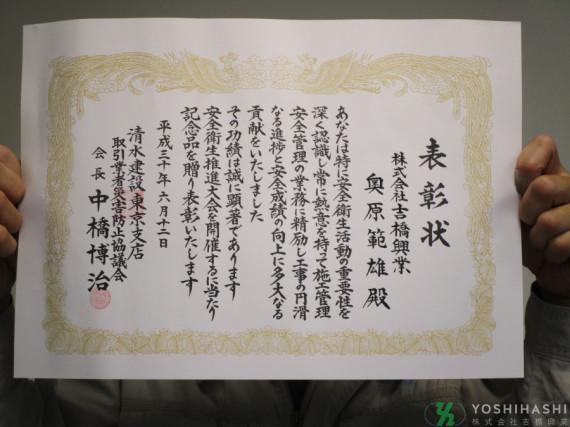 表彰状
株式会社吉橋興業
奥原範雄殿
あなたは特に安全衛生活動の重要性を
深く認識し常に熱意を持って施工管理
安全管理の業務に精励し工事の円滑
なる進捗と安全成績の向上に多大なる
貢献をいたしました
その功績は誠に顕著であります
安全衛生推進大会を開催するに当たり
記念品を贈り表彰いたします
平成三十年六月十二日
清水建設東京支店
取引業者災害防止協議会
会長 中橋博治
YOSHIHASHI
株式会社吉橋興業